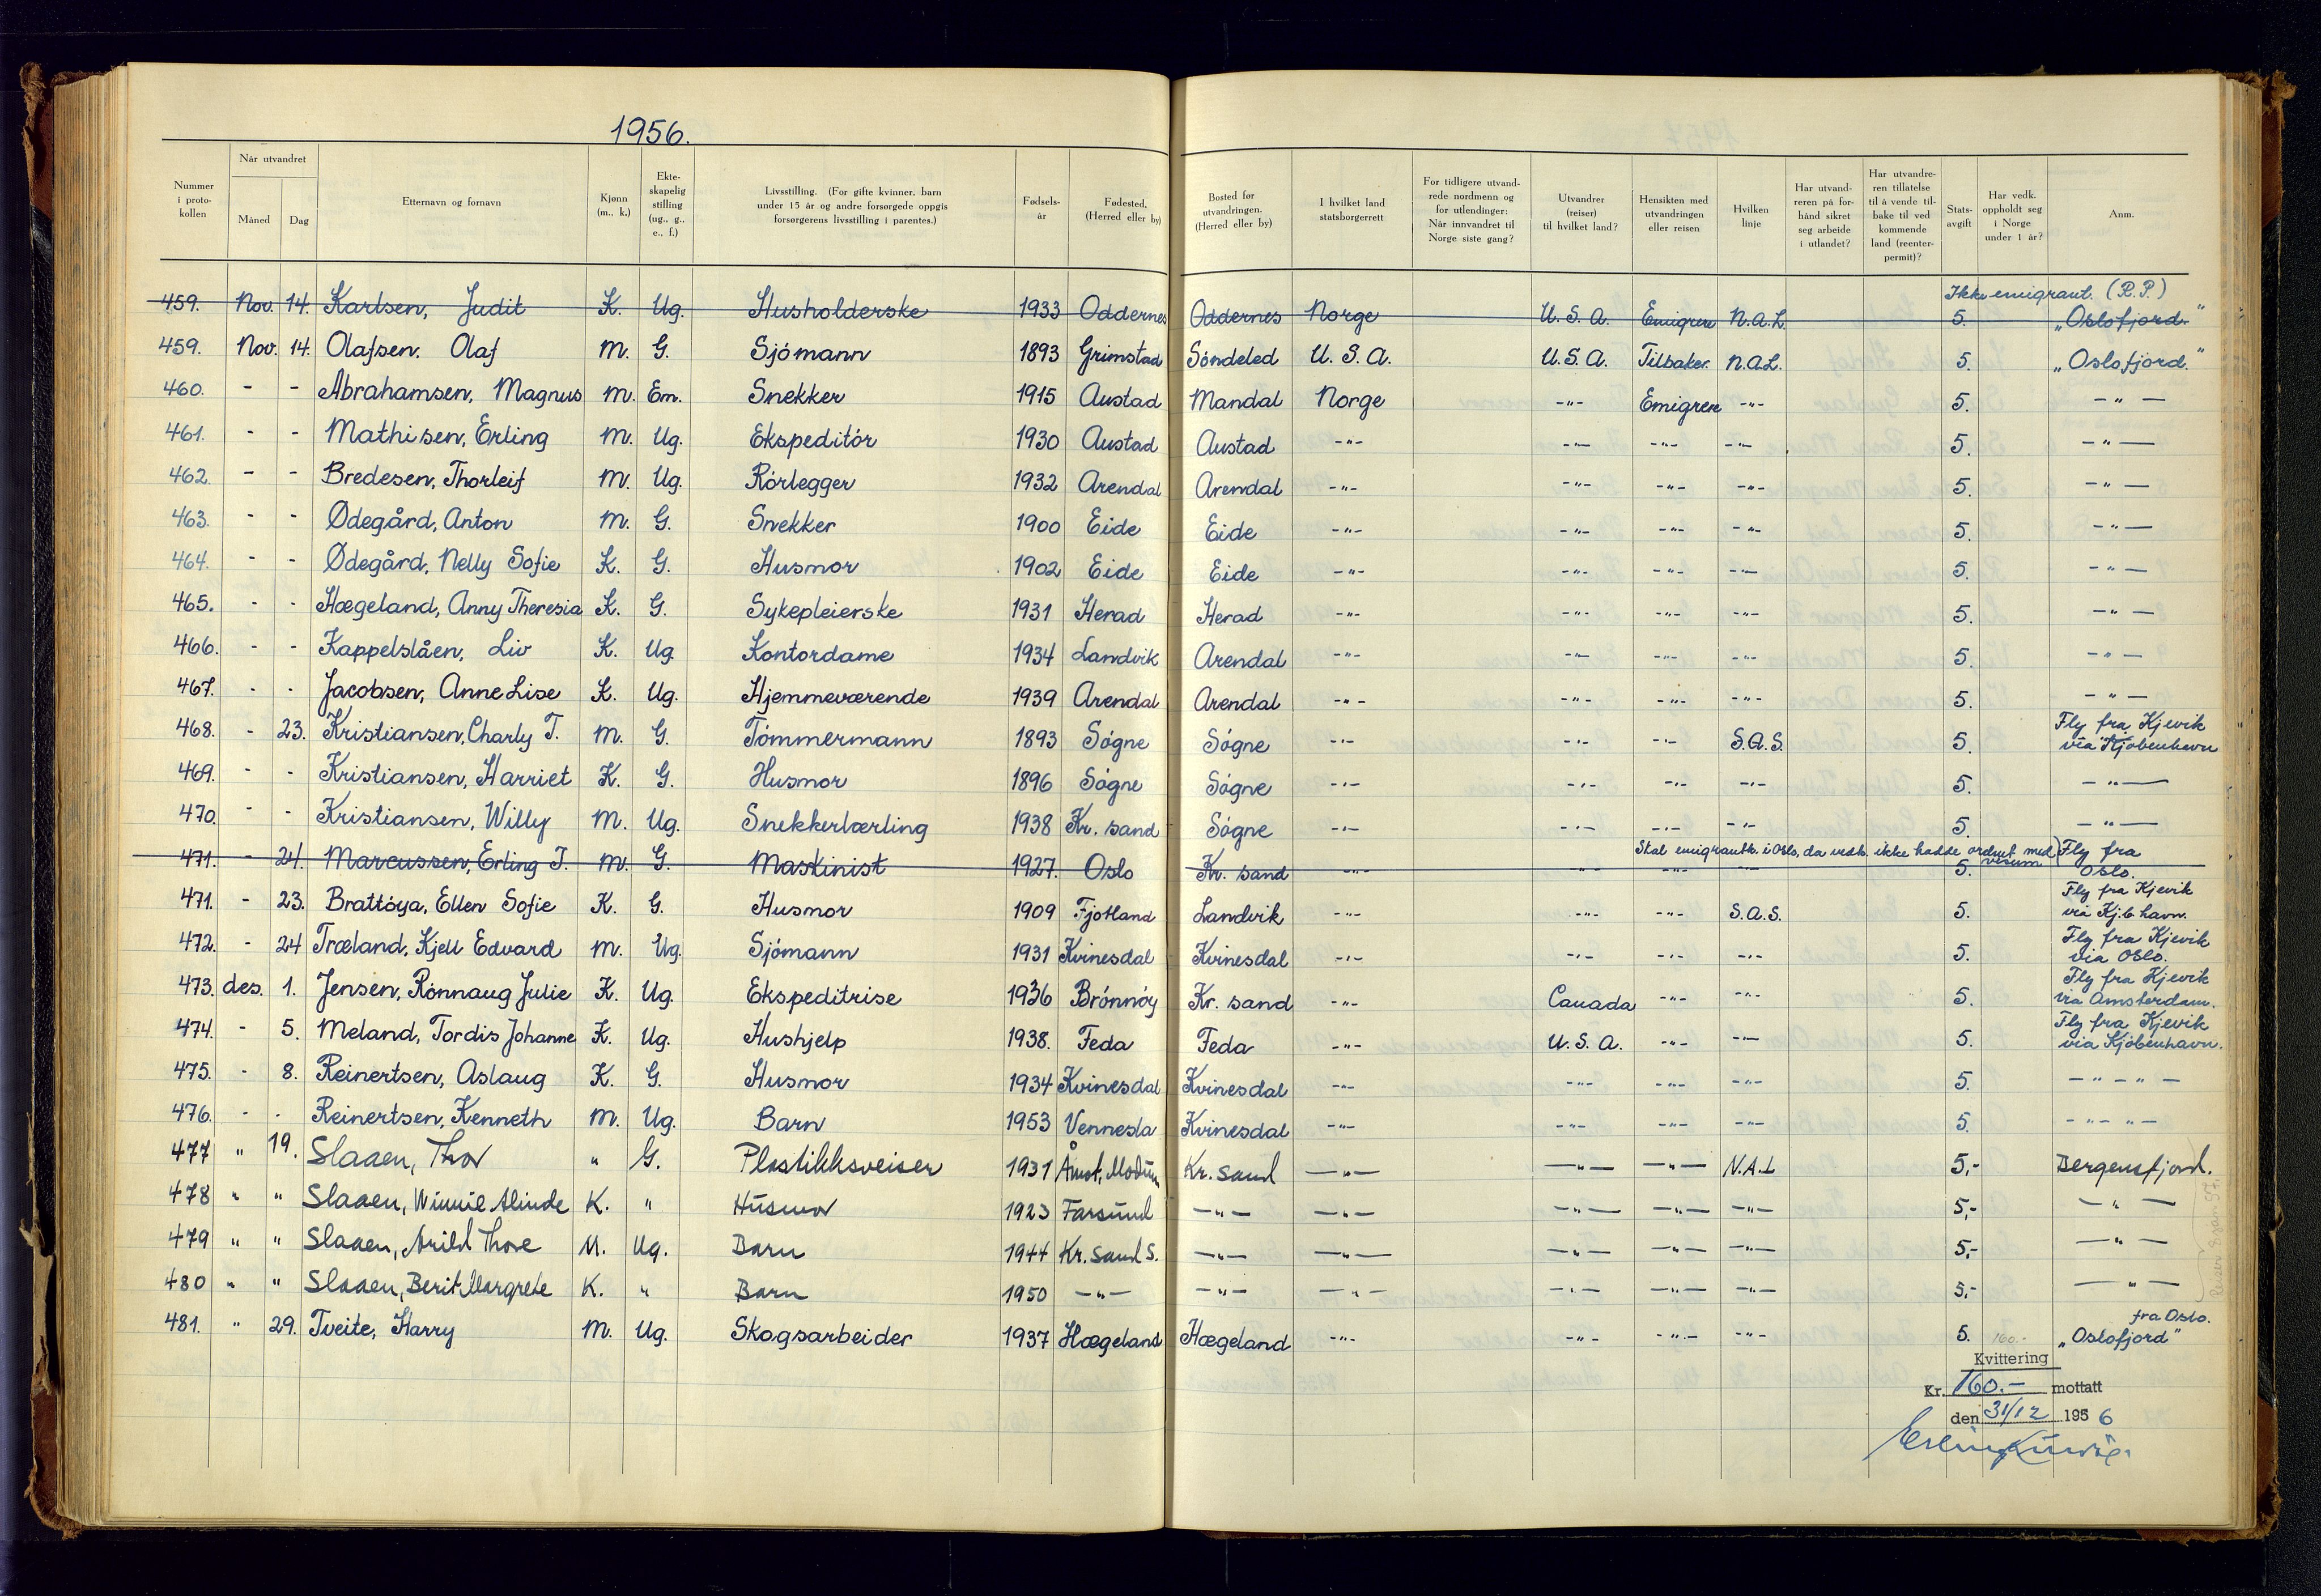 1956.
Nummer i proto- kollen | Når utvandret | Måned | Dag | Etternavn og fornavn | Kjønn (m., k.) | Ekte- skapelig stilling (ug., g., e., f.) | Livsstilling. (For gifte kvinner, barn under 15 år og andre forsørgede oppgis forsørgerens livsstilling i parentes.) | Fødsels- år | Fødested. (Herred eller by) | Bosted før utvandringen. (Herred eller by) | I hvilket land statsborgerrett | For tidligere utvand- rede nordmenn og for utlendinger: Når innvandret til Norge siste gang? | Utvandrer (reiser) til hvilket land? | Hensikten med utvandringen eller reisen | Hvilken linje | Har utvand- reren på for- hånd sikret seg arbeide i utlandet? | Har utvandre- ren tillatelse til å vende til- bake til ved kommende land (reenter- permit)? | Stats- avgift | Har vedk. oppholdt seg i Norge under 1 år? | Anm.
459. Nov. 14. Karlsen, Judit K. Ug. Husholderske 1933 Oddernes Oddernes Norge U.S.A. Emigrere N.A.L. 5. Ikke emigrant. (R.P.) „Oslofjord."
459. Nov. 14. Olafsen. Olaf M. G. Sjömann 1893 Grimstad Söndeled U.S.A. U.S.A. Tilbaker. N.A.L. 5. „Oslofjord."
460. - - Abrahamsen, Magnus M. Em. Snekker 1915 Austad Mandal Norge -"- Emigrere -"- 5. -"-
461. - - Mathisen, Erling M. Ug. Ekspeditör 1930 Austad Austad -"- -"- -"- -"- 5. -"-
462. - - Bredesen, Thorleif M. Ug. Rörlegger 1932 Arendal Arendal -"- -"- -"- -"- 5. -"-
463. - - Ødegård, Anton M. G. Snekker 1900 Eide Eide -"- -"- -"- -"- 5. -"-
464. - - Ødegård, Nelly Sofie K. G. Husmor 1902 Eide Eide -"- -"- -"- -"- 5. -"-
465. - - Hægeland, Anny Theresia K. G. Sykepleierske 1931 Herad Herad -"- -"- -"- -"- 5. -"-
466. - - Kappelslåen, Liv K. Ug. Kontordame 1934 Landvik Arendal -"- -"- -"- -"- 5. -"-
467. - - Jacobsen, Anne Lise K. Ug. Hjemmeværende 1939 Arendal Arendal -"- -"- -"- -"- 5. -"-
468. - 23. Kristiansen, Charly T. M. G. Tömmermann 1893 Sögne Sögne -"- -"- -"- S.A.S. 5. Fly fra Kjevik via Kjöbenhavn
469. - - Kristiansen, Harriet K. G. Husmor 1896 Sögne Sögne -"- -"- -"- -"- 5. -"-
470. - - Kristiansen, Willy M. Ug. Snekkerlærling 1938 Kr. sand Sögne -"- -"- -"- -"- 5. -"-
471. - 24. Marcussen, Erling T. M. G. Maskinist 1927. Oslo Kr. sand -"- -"- -"- -"- 5. Skal emigrantk. i Oslo, da vedk. ikke hadde ordnet med visum Fly fra Oslo.
471. - 23. Brattöya, Ellen Sofie K. G. Husmor 1909 Fjotland Landvik -"- -"- -"- S.A.S. 5. Fly fra Kjevik via Kjb.havn.
472. - 24 Træland, Kjell Edvard M. Ug. Sjömann 1931 Kvinesdal Kvinesdal -"- -"- -"- -"- 5. Fly fra Kjevik via Oslo.
473. des. 1. Jensen, Rönnaug Julie K. Ug. Ekspeditrise 1936 Brönnöy Kr. sand -"- Canada -"- -"- 5. Fly fra Kjevik via Amsterdam.
474. - 5. Meland, Tordis Johanne K. Ug. Hushjelp 1938. Feda Feda -"- U.S.A. -"- -"- 5. Fly fra Kjevik via Kjöbenhavn.
475. - 8. Reinertsen, Aslaug K. G. Husmor 1934 Kvinesdal Kvinesdal -"- -"- -"- -"- 5. -"-"-
476. - - Reinertsen, Kenneth M. Ug. Barn 1953 Vennesla Kvinesdal -"- -"- -"- -"- 5. -"-"-
477 " 19. Slaaen, Thor " G. Plastikksveiser 1931 Åmot, Modum Kr. sand -"- -"- -"- N.A.L 5,- Bergensfjord.
478 " " Slaaen, Winnie Alinde K. " Husmor 1923 Farsund -"- -"- -"- -"- -"- 5,- -"-
479 " " Slaaen, Arild Thore M. Ug. Barn 1944 Kr. sand S. -"- -"- -"- -"- -"- 5,- -"-
480 " " Slaaen, Berit Margrete K. " Barn 1950 -"- -"- -"- -"- -"- -"- 5,- -"-
481. " 29. Tveite, Harry M. Ug. Skogsarbeider 1937 Hægeland Hægeland -"- -"- -"- -"- 5. 160.- fra Oslo. „Oslofjord"
Kvittering
Kr. 160.- mottatt
den 31/12 1956